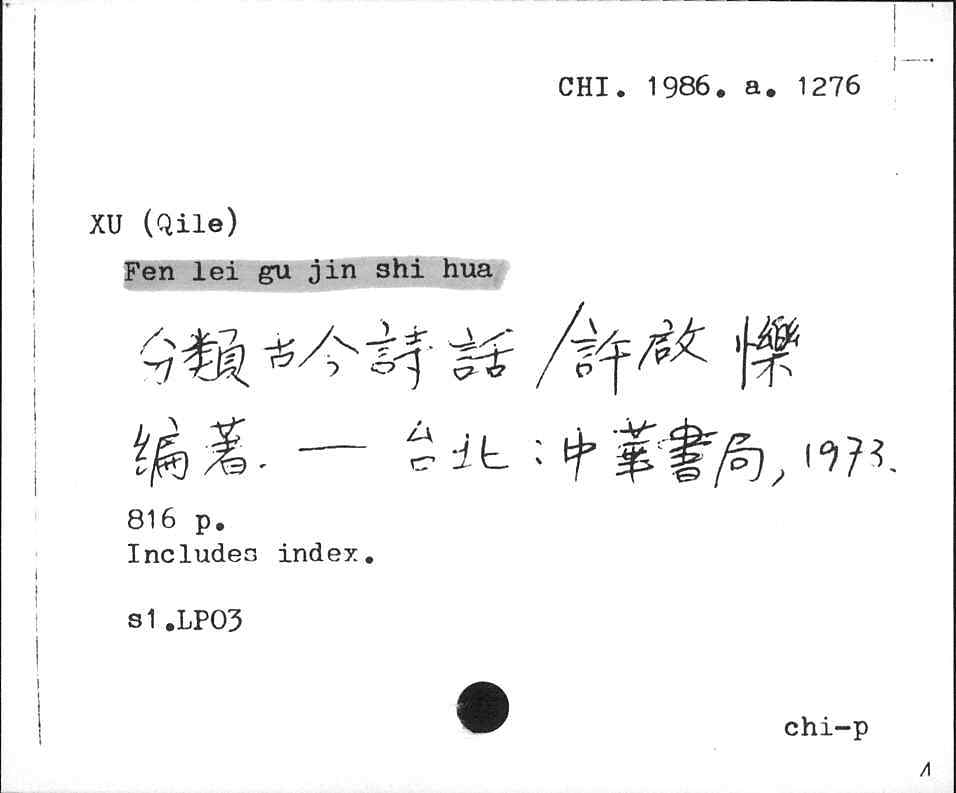 CHI. 1986. a. 1276
XU (Qile)
Fen lei gu jin shi hua
分類古今詩話/許啟懌
編著. — 台北:中華書局, 1973.
816 p.
Includes index.
s1.LP03
chi-p